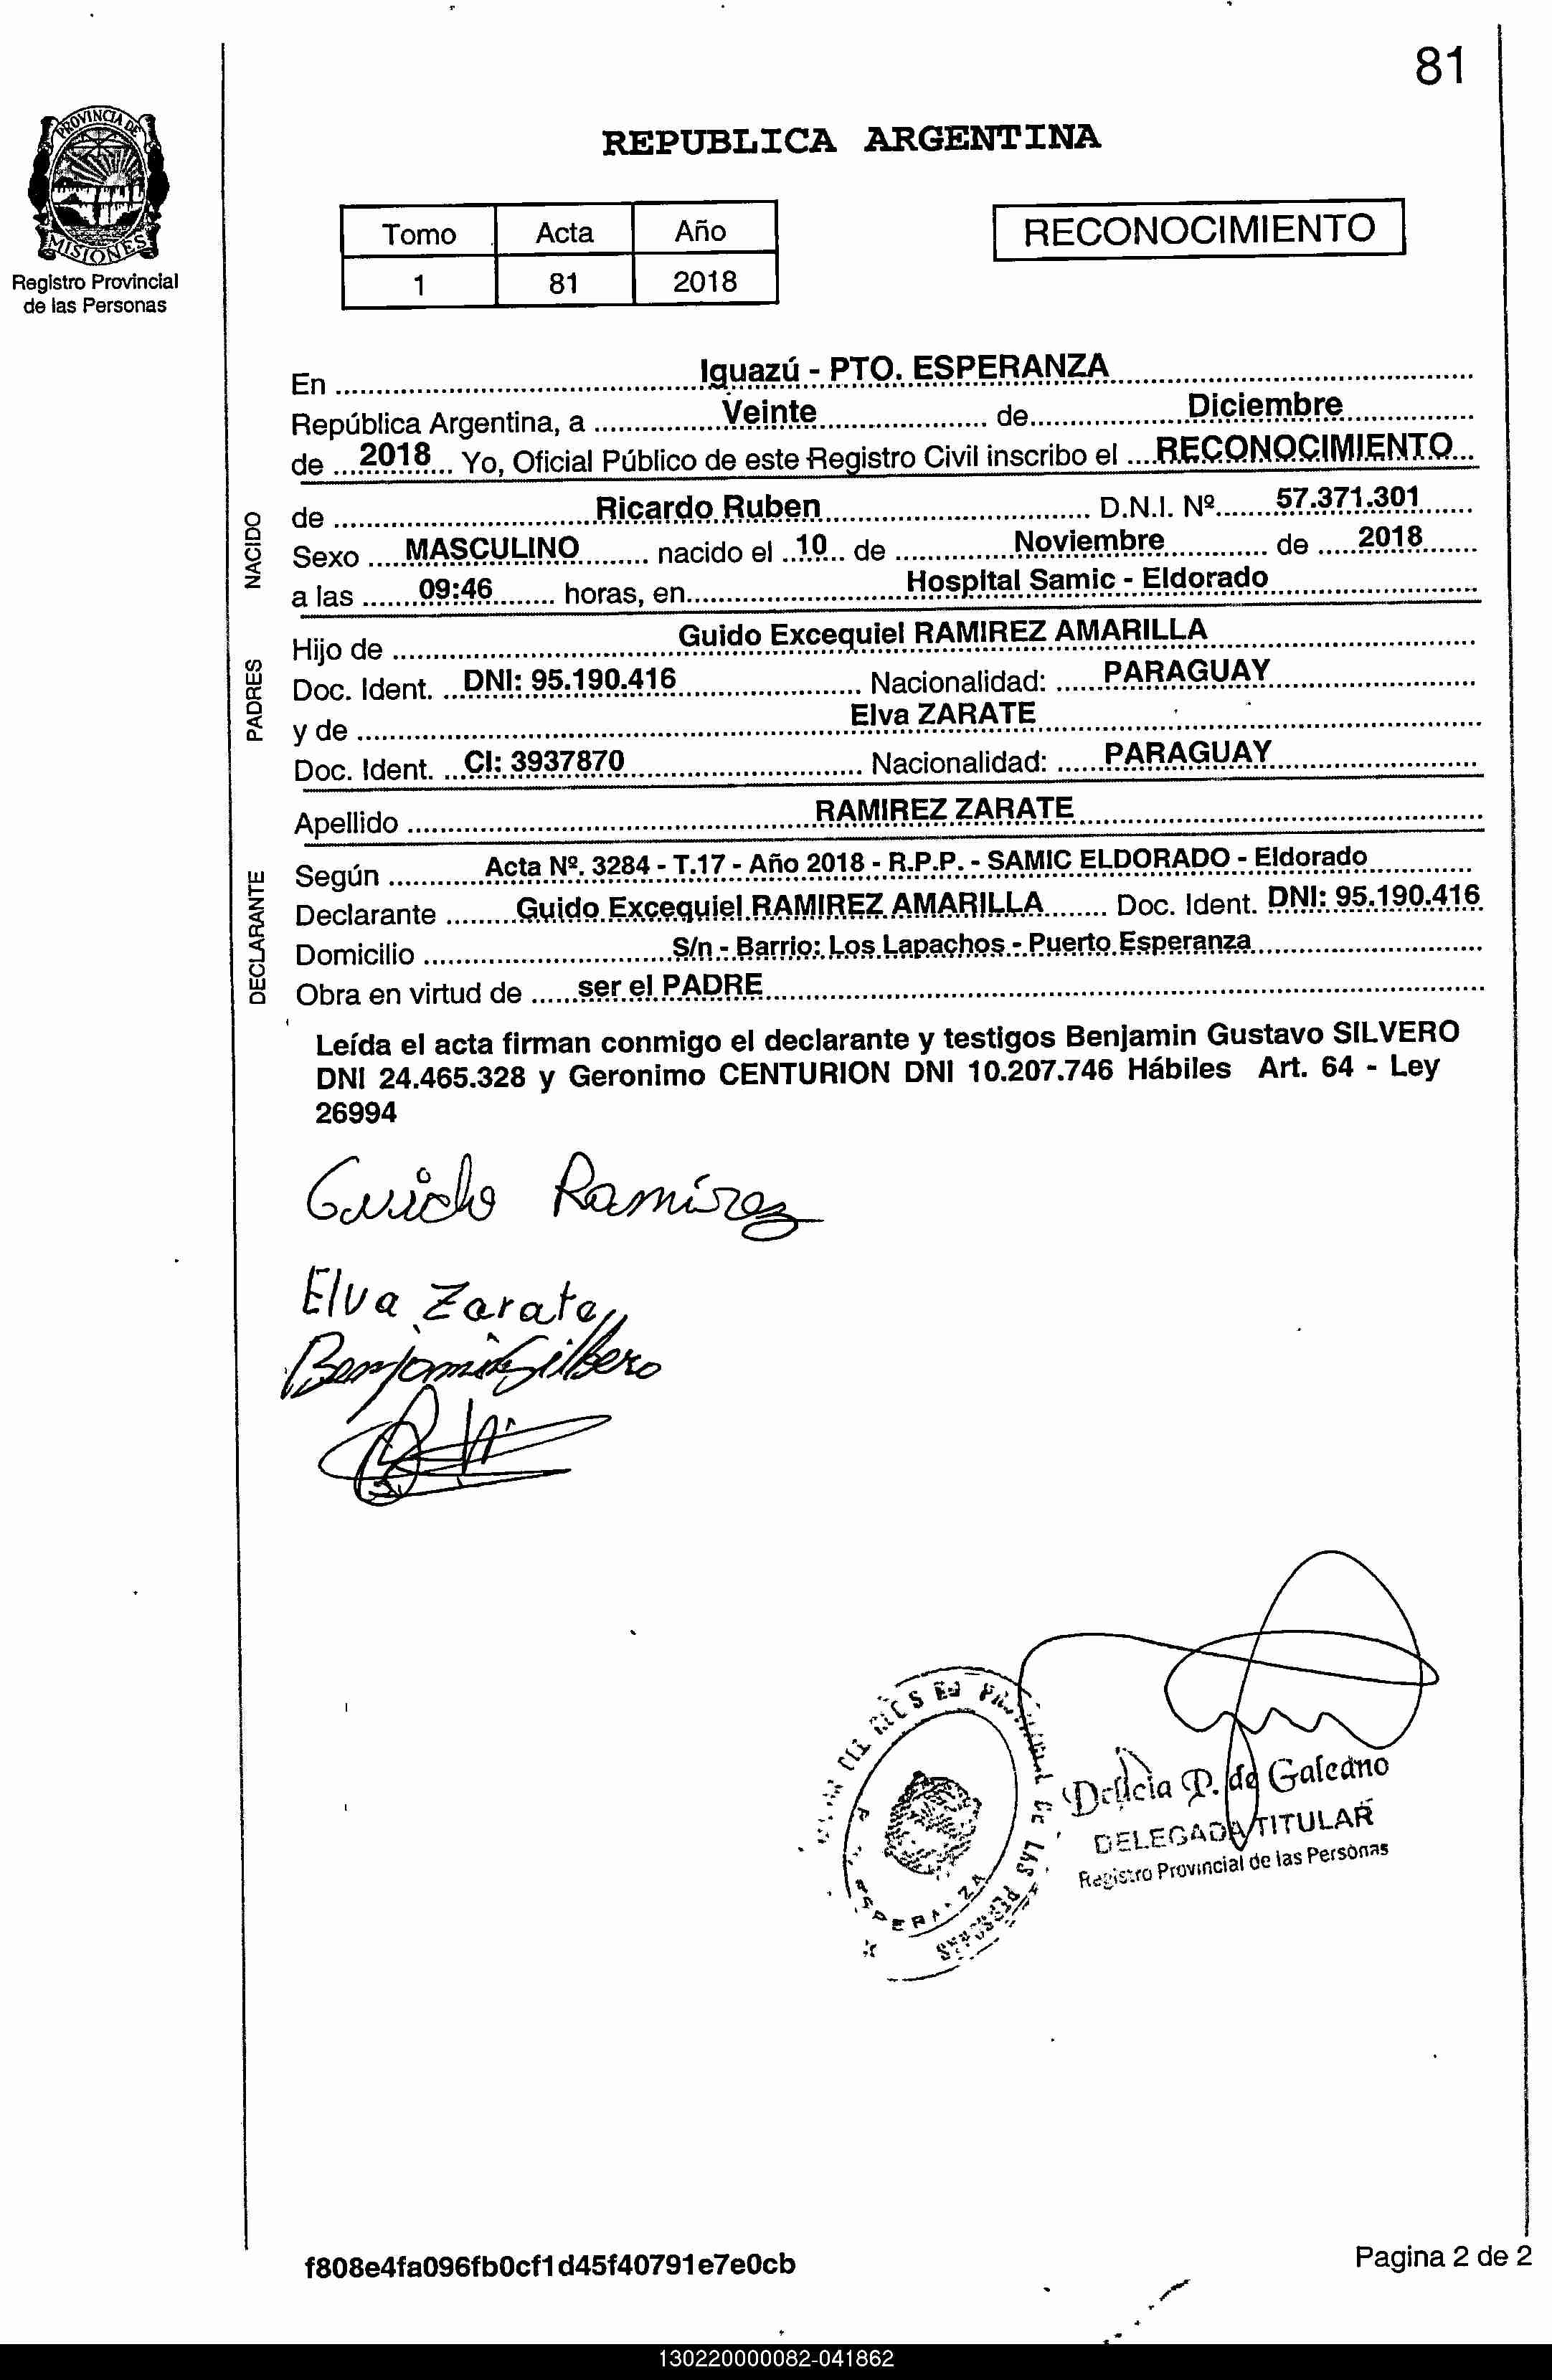 81
PROVINCIA DE
MISIONES
Registro Provincial
de las Personas
REPUBLICA ARGENTINA
Tomo Acta Año
1 81 2018
RECONOCIMIENTO
En Iguazú - PTO. ESPERANZA
República Argentina, a Veinte de Diciembre
de 2018 Yo, Oficial Público de este Registro Civil inscribo el RECONOCIMIENTO
NACIDO
de Ricardo Ruben D.N.I. Nº 57.371.301
Sexo MASCULINO nacido el 10 de Noviembre de 2018
a las 09:46 horas, en Hospital Samic - Eldorado
PADRES
Hijo de Guido Excequiel RAMIREZ AMARILLA
Doc. Ident. DNI: 95.190.416 Nacionalidad: PARAGUAY
y de Elva ZARATE
Doc. Ident. CI: 3937870 Nacionalidad: PARAGUAY
Apellido RAMIREZ ZARATE
DECLARANTE
Según Acta Nº. 3284 - T.17 - Año 2018 - R.P.P. - SAMIC ELDORADO - Eldorado
Declarante Guido Excequiel RAMIREZ AMARILLA Doc. Ident. DNI: 95.190.416
Domicilio S/n - Barrio: Los Lapachos - Puerto Esperanza
Obra en virtud de ser el PADRE
Leída el acta firman conmigo el declarante y testigos Benjamin Gustavo SILVERO
DNI 24.465.328 y Geronimo CENTURION DNI 10.207.746 Hábiles Art. 64 - Ley
26994
Guido Ramírez
Elva Zarate
Benjamin Silbero
DE LAS PERSONAS
Delicia P. de Galeano
DELEGADA TITULAR
Registro Provincial de las Personas
f808e4fa096fb0cf1d45f40791e7e0cb
Pagina 2 de 2
130220000082-041862